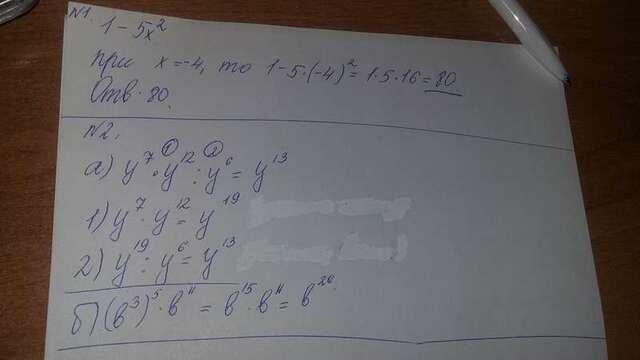 №1.
1 - 5x²
при x = -4, то 1 - 5·(-4)² = 1·5·16 = 80
Отв. 80.
№2.
а) y⁷ ① · y¹² ② : y⁶ = y¹³
1) y⁷ · y¹² = y¹⁹
2) y¹⁹ : y⁶ = y¹³
б) (b³)⁵ · b¹¹ = b¹⁵ · b¹¹ = b²⁶.